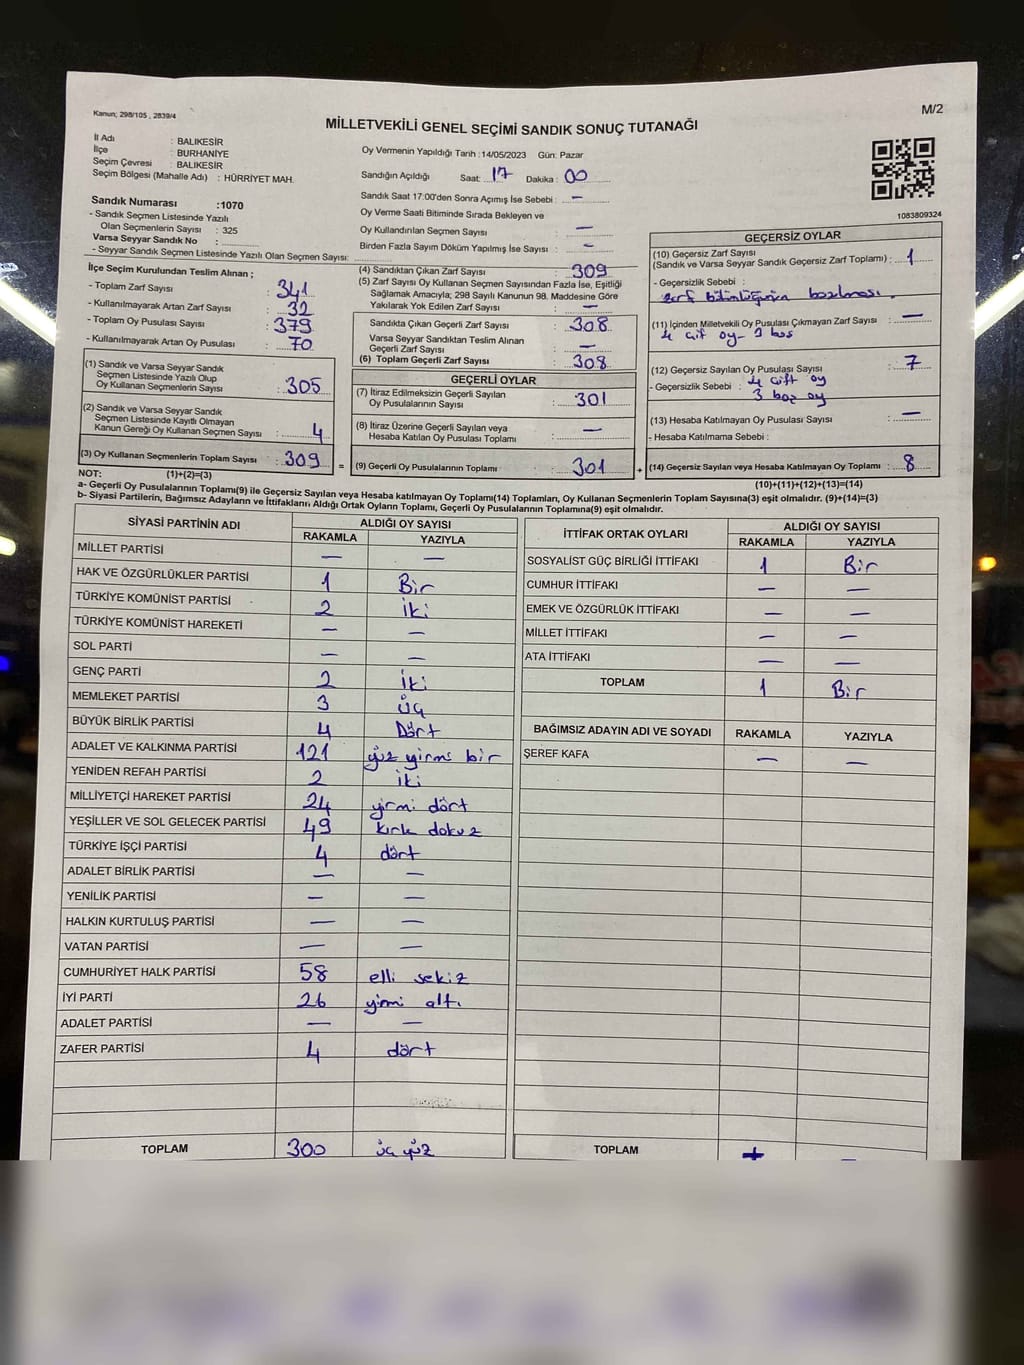 Kanun; 298/105 , 2839/4
M/2
MİLLETVEKİLİ GENEL SEÇİMİ SANDIK SONUÇ TUTANAĞI
İl Adı : BALIKESİR
İlçe : BURHANİYE
Seçim Çevresi : BALIKESİR
Seçim Bölgesi (Mahalle Adı) : HÜRRİYET MAH.
Sandık Numarası :1070
- Sandık Seçmen Listesinde Yazılı
Olan Seçmenlerin Sayısı : 325
Varsa Seyyar Sandık No :
- Seyyar Sandık Seçmen Listesinde Yazılı Olan Seçmen Sayısı:
Oy Vermenin Yapıldığı Tarih :14/05/2023 Gün: Pazar
Sandığın Açıldığı Saat: 17 Dakika : 00
Sandık Saat 17:00'den Sonra Açımış İse Sebebi : —
Oy Verme Saati Bitiminde Sırada Bekleyen ve
Oy Kullandırılan Seçmen Sayısı : —
Birden Fazla Sayım Döküm Yapılmış İse Sayısı : —
1083809324
İlçe Seçim Kurulundan Teslim Alınan ;
- Toplam Zarf Sayısı : 341
- Kullanılmayarak Artan Zarf Sayısı : 32
- Toplam Oy Pusulası Sayısı : 379
- Kullanılmayarak Artan Oy Pusulası : 70
(1) Sandık ve Varsa Seyyar Sandık
Seçmen Listesinde Yazılı Olup
Oy Kullanan Seçmenlerin Sayısı : 305
(2) Sandık ve Varsa Seyyar Sandık
Seçmen Listesinde Kayıtlı Olmayan
Kanun Gereği Oy Kullanan Seçmen Sayısı : 4
(3) Oy Kullanan Seçmenlerin Toplam Sayısı : 309
(4) Sandıktan Çıkan Zarf Sayısı : 309
(5) Zarf Sayısı Oy Kullanan Seçmen Sayısından Fazla İse, Eşitliği
Sağlamak Amacıyla; 298 Sayılı Kanunun 98. Maddesine Göre
Yakılarak Yok Edilen Zarf Sayısı : —
Sandıkta Çıkan Geçerli Zarf Sayısı : 308
Varsa Seyyar Sandıktan Teslim Alınan
Geçerli Zarf Sayısı : —
(6) Toplam Geçerli Zarf Sayısı : 308
GEÇERLİ OYLAR
(7) İtiraz Edilmeksizin Geçerli Sayılan
Oy Pusulalarının Sayısı : 301
(8) İtiraz Üzerine Geçerli Sayılan veya
Hesaba Katılan Oy Pusulası Toplamı : —
= (9) Geçerli Oy Pusulalarının Toplamı : 301 +
GEÇERSİZ OYLAR
(10) Geçersiz Zarf Sayısı
(Sandık ve Varsa Seyyar Sandık Geçersiz Zarf Toplamı) : 1
- Geçersizlik Sebebi :
zarf bütünlüğünün bozulması.
(11) İçinden Milletvekili Oy Pusulası Çıkmayan Zarf Sayısı : —
4 çift oy - 3 boş
(12) Geçersiz Sayılan Oy Pusulası Sayısı : 7
- Geçersizlik Sebebi : 4 çift oy
3 boş oy
(13) Hesaba Katılmayan Oy Pusulası Sayısı : —
- Hesaba Katılmama Sebebi :
(14) Geçersiz Sayılan veya Hesaba Katılmayan Oy Toplamı : 8
NOT: (1)+(2)=(3)
(10)+(11)+(12)+(13)=(14)
a- Geçerli Oy Pusulalarının Toplamı(9) ile Geçersiz Sayılan veya Hesaba katılmayan Oy Toplamı(14) Toplamları, Oy Kullanan Seçmenlerin Toplam Sayısına(3) eşit olmalıdır. (9)+(14)=(3)
b- Siyasi Partilerin, Bağımsız Adayların ve İttifakların Aldığı Ortak Oyların Toplamı, Geçerli Oy Pusulalarının Toplamına(9) eşit olmalıdır.
SİYASİ PARTİNİN ADI ALDIĞI OY SAYISI
RAKAMLA YAZIYLA
MİLLET PARTİSİ — —
HAK VE ÖZGÜRLÜKLER PARTİSİ 1 Bir
TÜRKİYE KOMÜNİST PARTİSİ 2 iki
TÜRKİYE KOMÜNİST HAREKETİ — —
SOL PARTİ — —
GENÇ PARTİ 2 iki
MEMLEKET PARTİSİ 3 üç
BÜYÜK BİRLİK PARTİSİ 4 Dört
ADALET VE KALKINMA PARTİSİ 121 yüz yirmi bir
YENİDEN REFAH PARTİSİ 2 iki
MİLLİYETÇİ HAREKET PARTİSİ 24 yirmi dört
YEŞİLLER VE SOL GELECEK PARTİSİ 49 kırk dokuz
TÜRKİYE İŞÇİ PARTİSİ 4 dört
ADALET BİRLİK PARTİSİ — —
YENİLİK PARTİSİ — —
HALKIN KURTULUŞ PARTİSİ — —
VATAN PARTİSİ — —
CUMHURİYET HALK PARTİSİ 58 elli sekiz
İYİ PARTİ 26 yirmi altı
ADALET PARTİSİ — —
ZAFER PARTİSİ 4 dört
TOPLAM 300 üç yüz
İTTİFAK ORTAK OYLARI ALDIĞI OY SAYISI
RAKAMLA YAZIYLA
SOSYALİST GÜÇ BİRLİĞİ İTTİFAKI 1 Bir
CUMHUR İTTİFAKI — —
EMEK VE ÖZGÜRLÜK İTTİFAKI — —
MİLLET İTTİFAKI — —
ATA İTTİFAKI — —
TOPLAM 1 Bir
BAĞIMSIZ ADAYIN ADI VE SOYADI RAKAMLA YAZIYLA
ŞEREF KAFA — —
TOPLAM